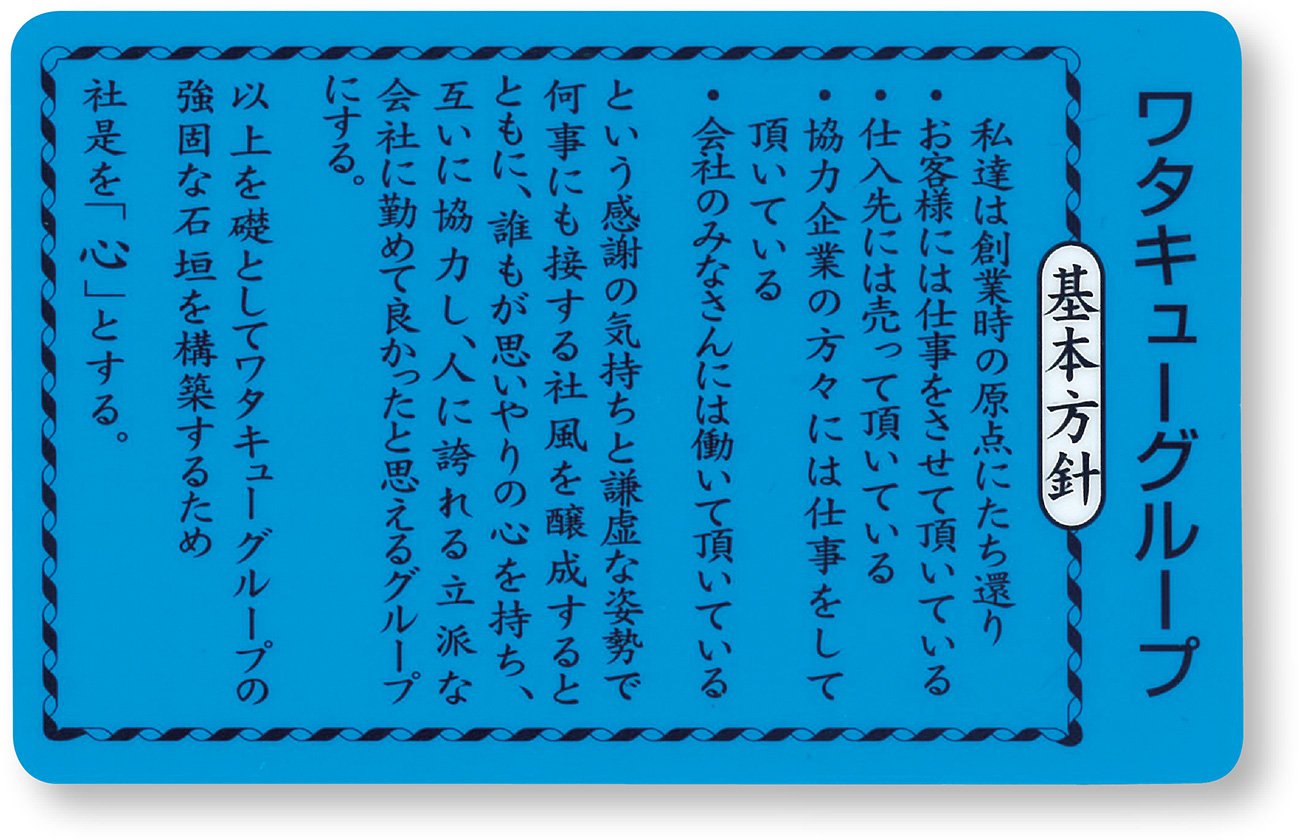 ワタキューグループ
基本方針
私達は創業時の原点にたち還り
・お客様には仕事をさせて頂いている
・仕入先には売って頂いている
・協力企業の方々には仕事をして
頂いている
・会社のみなさんには働いて頂いている
という感謝の気持ちと謙虚な姿勢で
何事にも接する社風を醸成すると
ともに、誰もが思いやりの心を持ち、
互いに協力し、人に誇れる立派な
会社に勤めて良かったと思えるグループ
にする。
以上を礎としてワタキューグループの
強固な石垣を構築するため
社是を「心」とする。